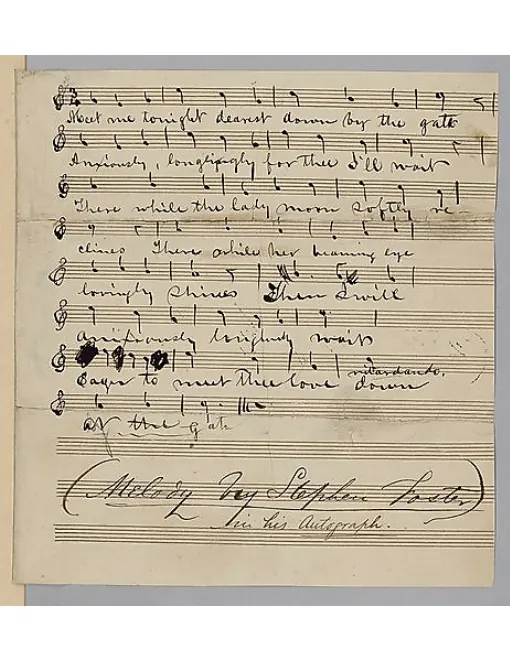 Meet me tonight dearest down by the gate
Anxiously, longlingly for thee I'll wait
There while the lady moon softly re-
clines There while her beaming eye
lovingly shines Then I will
anxiously longingly wait
ritardando.
Eager to meet thee love down
at the gate
(Melody by Stephen Foster)
in his Autograph.